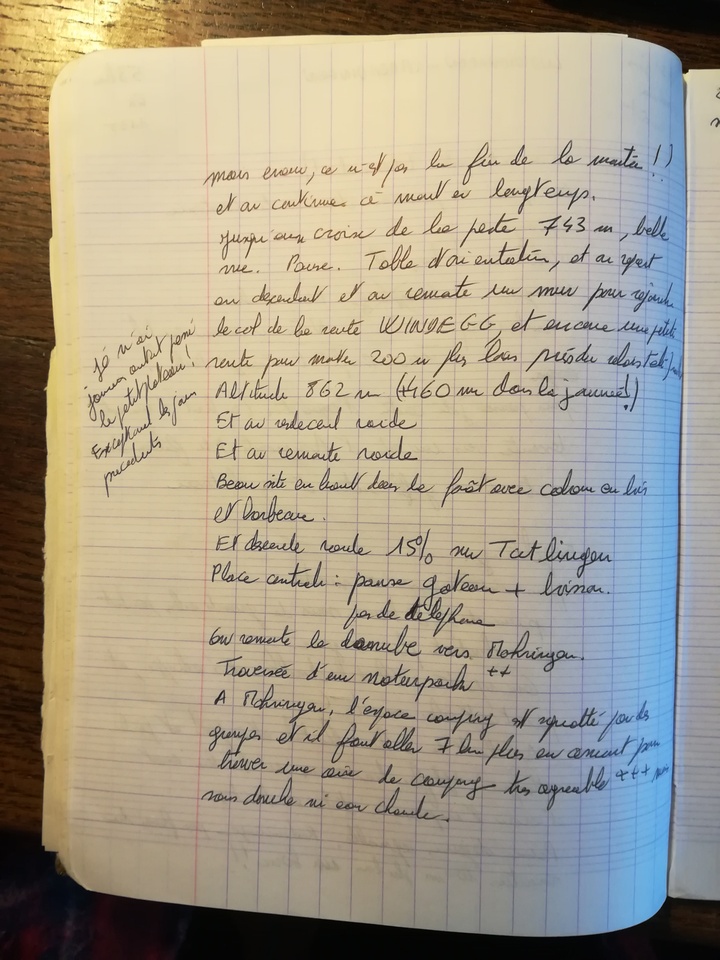 mais encore, ce n'est pas la fin de la montée !!
et on continue et mont en longtemps.
Jusqu'aux croix de la peste 743 m, belle
vue. Pause. Table d'orientation, et on repart
on descend et on remonte un mur pour rejoindre
le col de la route WINDEGG, et encore une petite
route pour monter 200 m plus loin près du
Altitude 862 m (1160 m dans la journée !)
Et on redescend raide
Et on remonte raide
Beau site en haut dans la forêt avec cabane en bois
et barbecue.
Et descente raide 15% sur Tuttlingen
Place centrale : pause gateau + boisson.
pas de téléphone
On remonte le danube vers Mohringen.
Traversée d'un naturpark ++
A Mohringen, l'espace camping est squatté par des
groupes et il faut aller 7 km plus en amont pour
trouver une aire de camping très agréable +++ mais
sans douche ni eau chaude.
Je n'ai
jamais autant poussé
le petit plateau !
Exceptant les jours
precedents